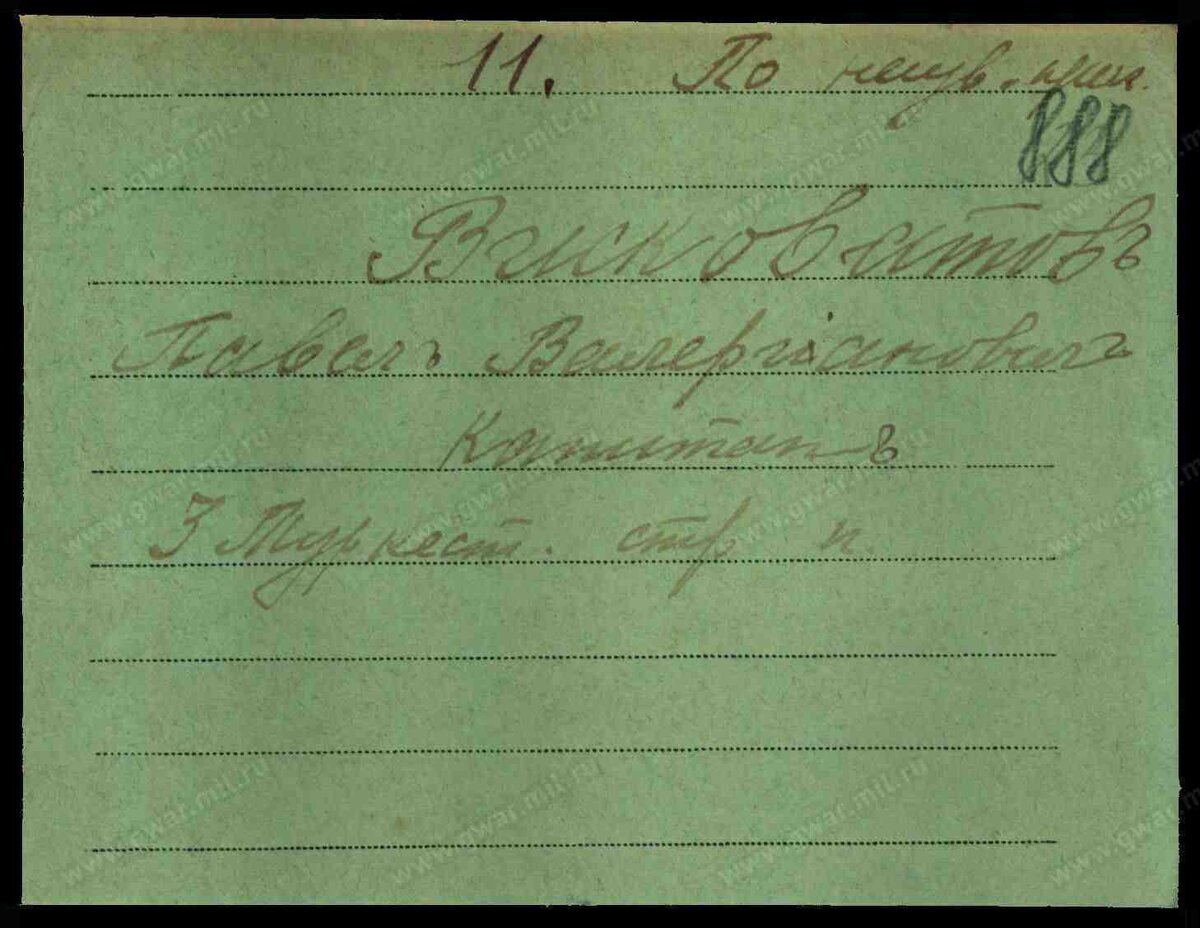 11. По
888
Висковатовъ
Павелъ Валеріановичъ
Капитанъ
3 Туркест. стр п
www.gwar.mil.ru